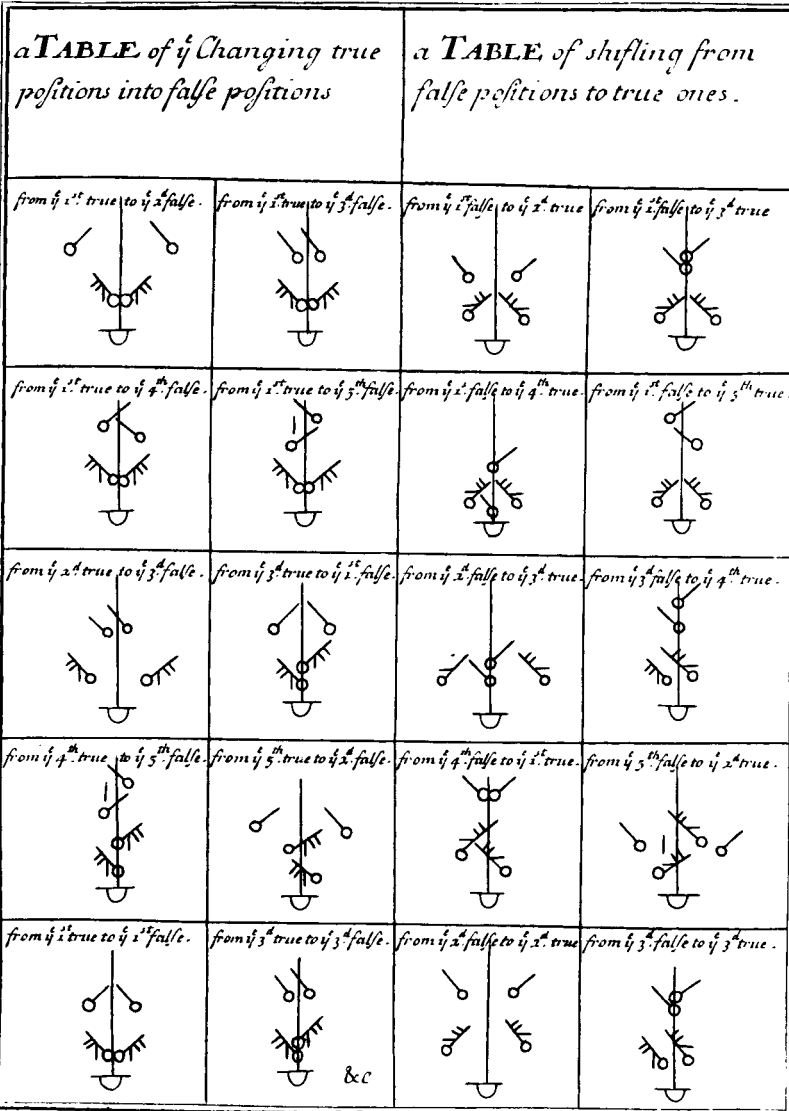 a TABLE of yᵉ Changing true
poſitions into falſe poſitions
a TABLE of shifling from
falſe poſitions to true ones.
from yᵉ 1ˢᵗ true to yᵉ 2ᵈ falſe.
from yᵉ 1ˢᵗ true to yᵉ 3ᵈ falſe.
from yᵉ 1ˢᵗ falſe to yᵉ 2ᵈ true
from yᵉ 1ˢᵗ falſe to yᵉ 3ᵈ true
from yᵉ 1ˢᵗ true to yᵉ 4ᵗʰ falſe.
from yᵉ 1ˢᵗ true to yᵉ 5ᵗʰ falſe.
from yᵉ 1ˢᵗ falſe to yᵉ 4ᵗʰ true.
from yᵉ 1ˢᵗ falſe to yᵉ 5ᵗʰ true.
from yᵉ 2ᵈ true to yᵉ 3ᵈ falſe.
from yᵉ 3ᵈ true to yᵉ 1ˢᵗ falſe.
from yᵉ 2ᵈ falſe to yᵉ 3ᵈ true.
from yᵉ 3ᵈ falſe to yᵉ 4ᵗʰ true.
from yᵉ 4ᵗʰ true to yᵉ 5ᵗʰ falſe.
from yᵉ 5ᵗʰ true to yᵉ 2ᵈ falſe.
from yᵉ 4ᵗʰ falſe to yᵉ 1ˢᵗ true.
from yᵉ 5ᵗʰ falſe to yᵉ 2ᵈ true.
from yᵉ 1ˢᵗ true to yᵉ 1ˢᵗ falſe.
from yᵉ 3ᵈ true to yᵉ 3ᵈ falſe.
from yᵉ 2ᵈ falſe to yᵉ 2ᵈ true
from yᵉ 3ᵈ falſe to yᵉ 3ᵈ true.
&c